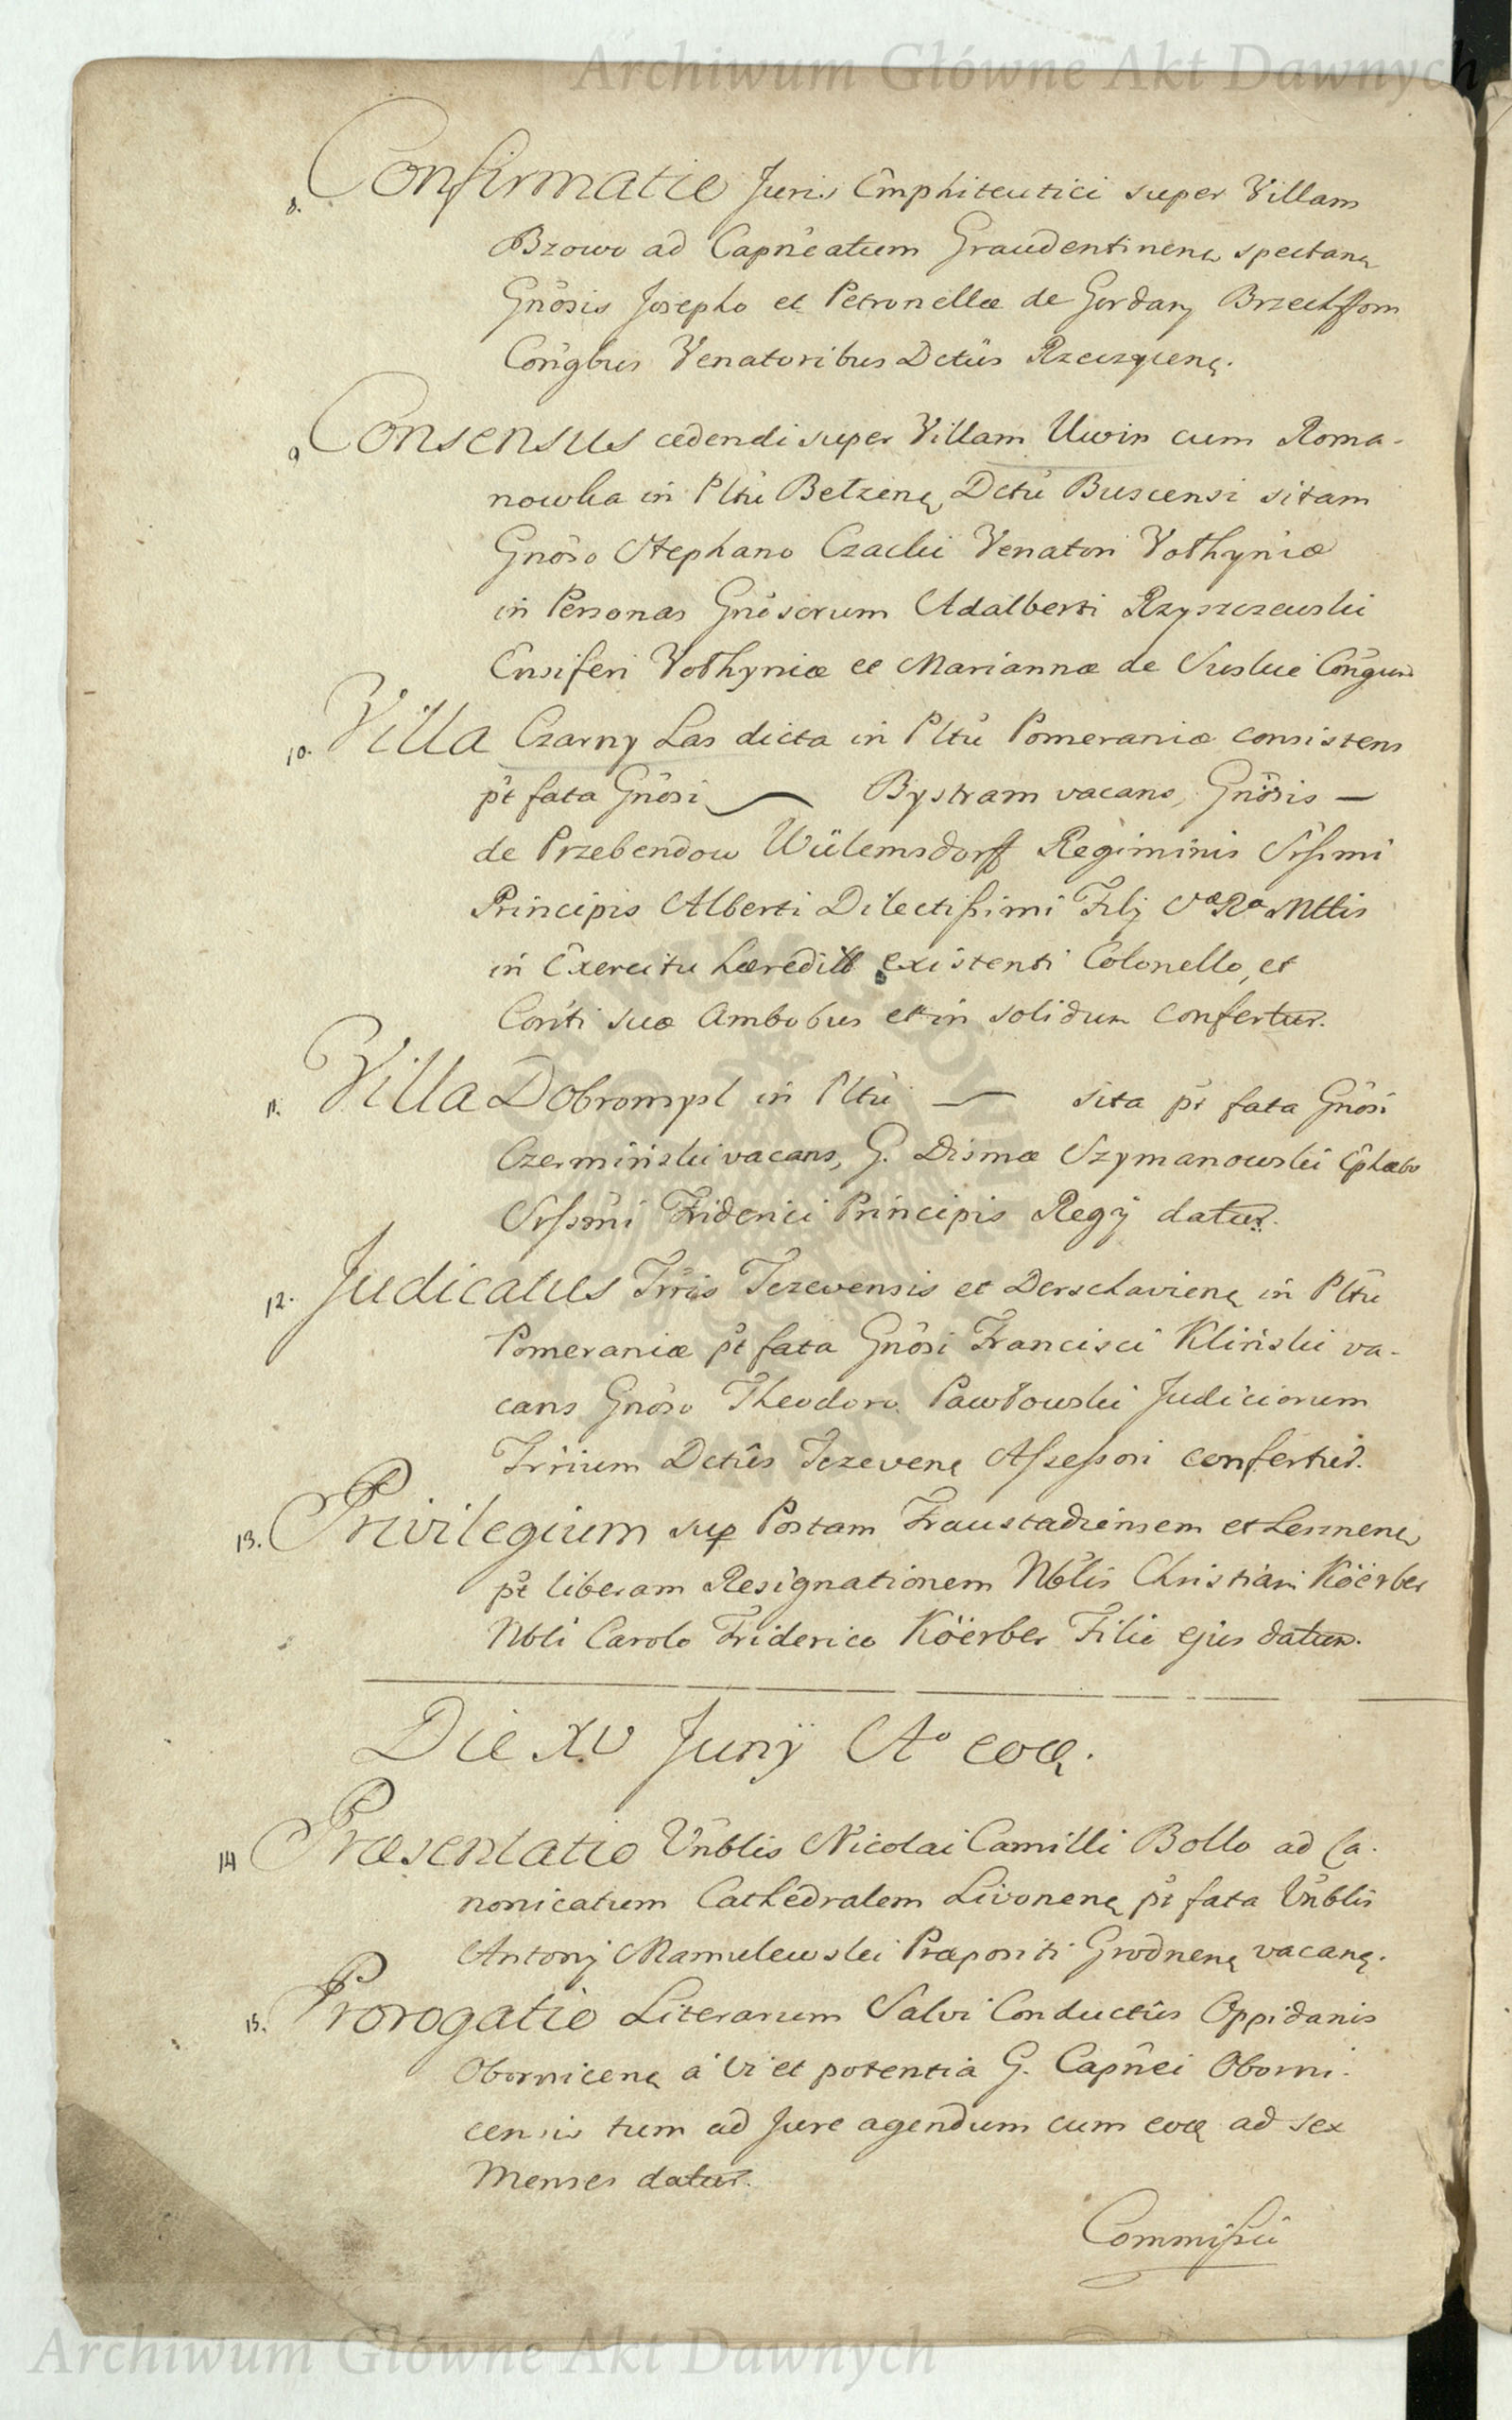 Archiwum Główne Akt Dawnych
8. Confirmatio Juris Emphiteutici super Villam
Bzowo ad Capn̄eatum Graudentinenę spectanę
Gnōsis Josepho et Petronellæ de Gordany Brzechffom
Con̄gbus Venatoribus Dctūs Rzeczycenę.
9. Consensus cedendi super Villam Uwin cum Roma-
nowka in Pltū Bełzenę Dctū Buscensi sitam
Gnōso Stephano Czacki Venatori Vołhyniæ
in Personas Gnōsorum Adalberti Rzyszczewski
Ensiferi Vołhyniæ et Mariannæ de Suskie Con̄gum
10. Villa Czarny Las dicta in Pltū Pomeraniæ consistens
p̄t fata Gnōsi — Bystram vacans, Gnōsis —
de Przebendow Wülemsdorff Regiminis Srſsimi
Principis Alberti Dilectiſsimi Filij Sæ Ræ Mttis
in Exercitu hæredill existenti Colonello, et
Con̄ti suæ Ambobus et in solidum confertur.
11. Villa Dobromysl in Pltū — sita p̄t fata Gnōsi
Czermiński vacans, G. Dismæ Szymanowski Ephæbo
Srſsmi Friderici Principis Regij datur.
12. Judicatus Trr̄is Tczevensis et Derschavienę in Pltū
Pomeraniæ p̄t fata Gnōsi Francisci Kliński va-
cans Gnōso Theodoro Pawłowski Judiciorum
Trr̄ium Dctūs Tczevenę Aſseſsori confertur.
13. Privilegium sup Postam Fraustadiensem et Lesznenę
p̄t liberam Resignationem Nblis Christiani Köerber
Nbli Carolo Friderico Köerber Filio ejus datur.
Die XV Junÿ Ao eoꝗ.
14 Præsentatio Vn̄blis Nicolai Camilli Bollo ad Ca-
nonicatum Cathedralem Livonenę p̄t fata Vn̄blis
Antonij Mamulewski Præpositi Grodnenę vacanę.
15. Prorogatio Literarum Salvi Conductūs Oppidanis
Obornicenę à vi et potentia G. Capn̄ei Oborni-
censis tum ad Jure agendum cum eoꝗ ad sex
Menses datur.
Commiſsii
Archiwum Główne Akt Dawnych